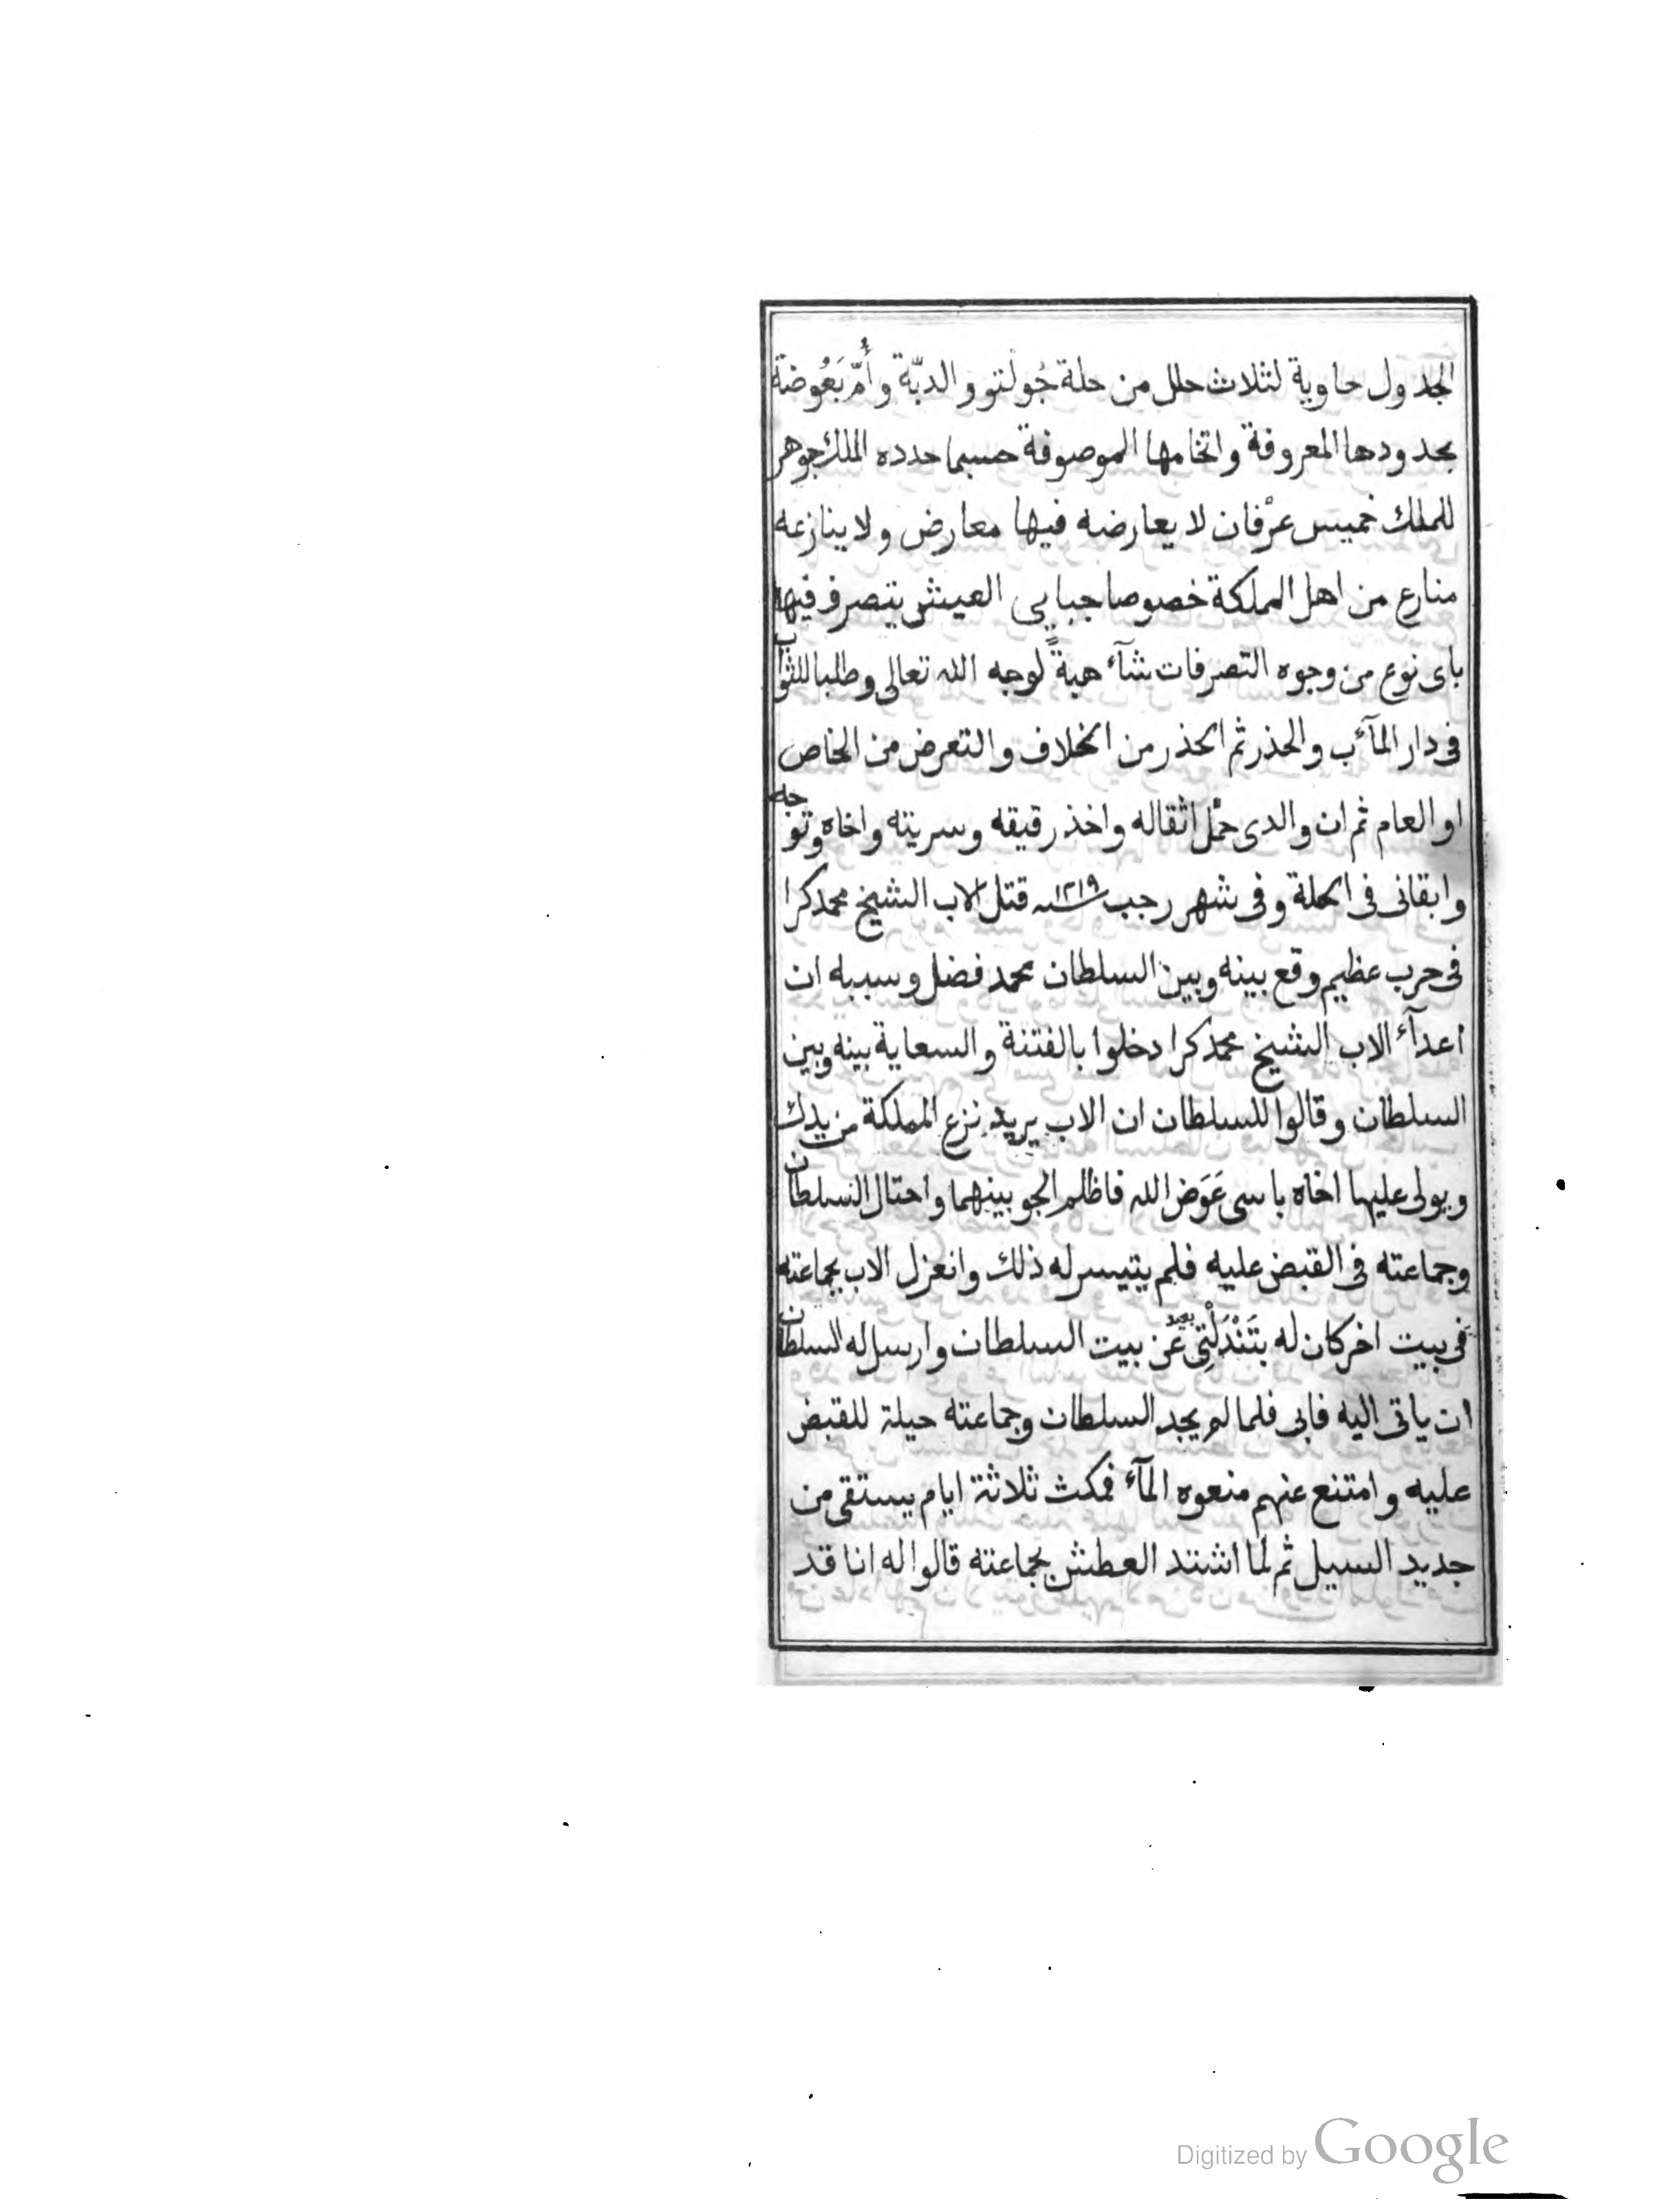 الجدول حاوية لثلاث حلل من حلة جُولْتو والدبّة وأُمّ بَعُوضة
بحدودها المعروفة واتخامها الموصوفة حسبما حدده الملك جوهر
للملك خميس عرْفان لا يعارضه فيها معارض ولا ينازعه
منازع من اهل المملكة خصوصا جبايى العيش يتصرف فيها
باى نوع من وجوه التصرفات شآء هبةً لوجه الله تعالى وطلبا للثواب
فى دار المآب والحذر ثم الحذر من الخلاف والتعرض من الخاص
او العام ثم ان والدى حمّل اثقاله واخذ رقيقه وسريته واخاه وتوجه
وابقانى فى الحلة وفى شهر رجب سنة ١٢١٩ قتل الاب الشيخ محمد كرا
فى حرب عظيم وقع بينه وبين السلطان محمد فضل وسببه ان
اعدآء الاب الشيخ محمد كرا دخلوا بالفتنة والسعاية بينه وبين
السلطان وقالوا للسلطان ان الاب يريد نزع المملكة من يدك
ويولى عليها اخاه باسى عَوَض الله فاظلم الجو بينهما واحتال السلطان
وجماعته فى القبض عليه فلم يتيسر له ذلك وانعزل الاب بجماعته
فى بيت اخر كان له بتَنْدَلْتِى بعيد عن بيت السلطان وارسل له السلطان
ان ياتى اليه فابى فلما لم يجد السلطان وجماعته حيلة للقبض
عليه وامتنع عنهم منعوه المآء فمكث ثلاثة ايام يستقى من
جديد السيل ثم لما اشتد العطش بجماعته قالوا له انا قد
Digitized by Google